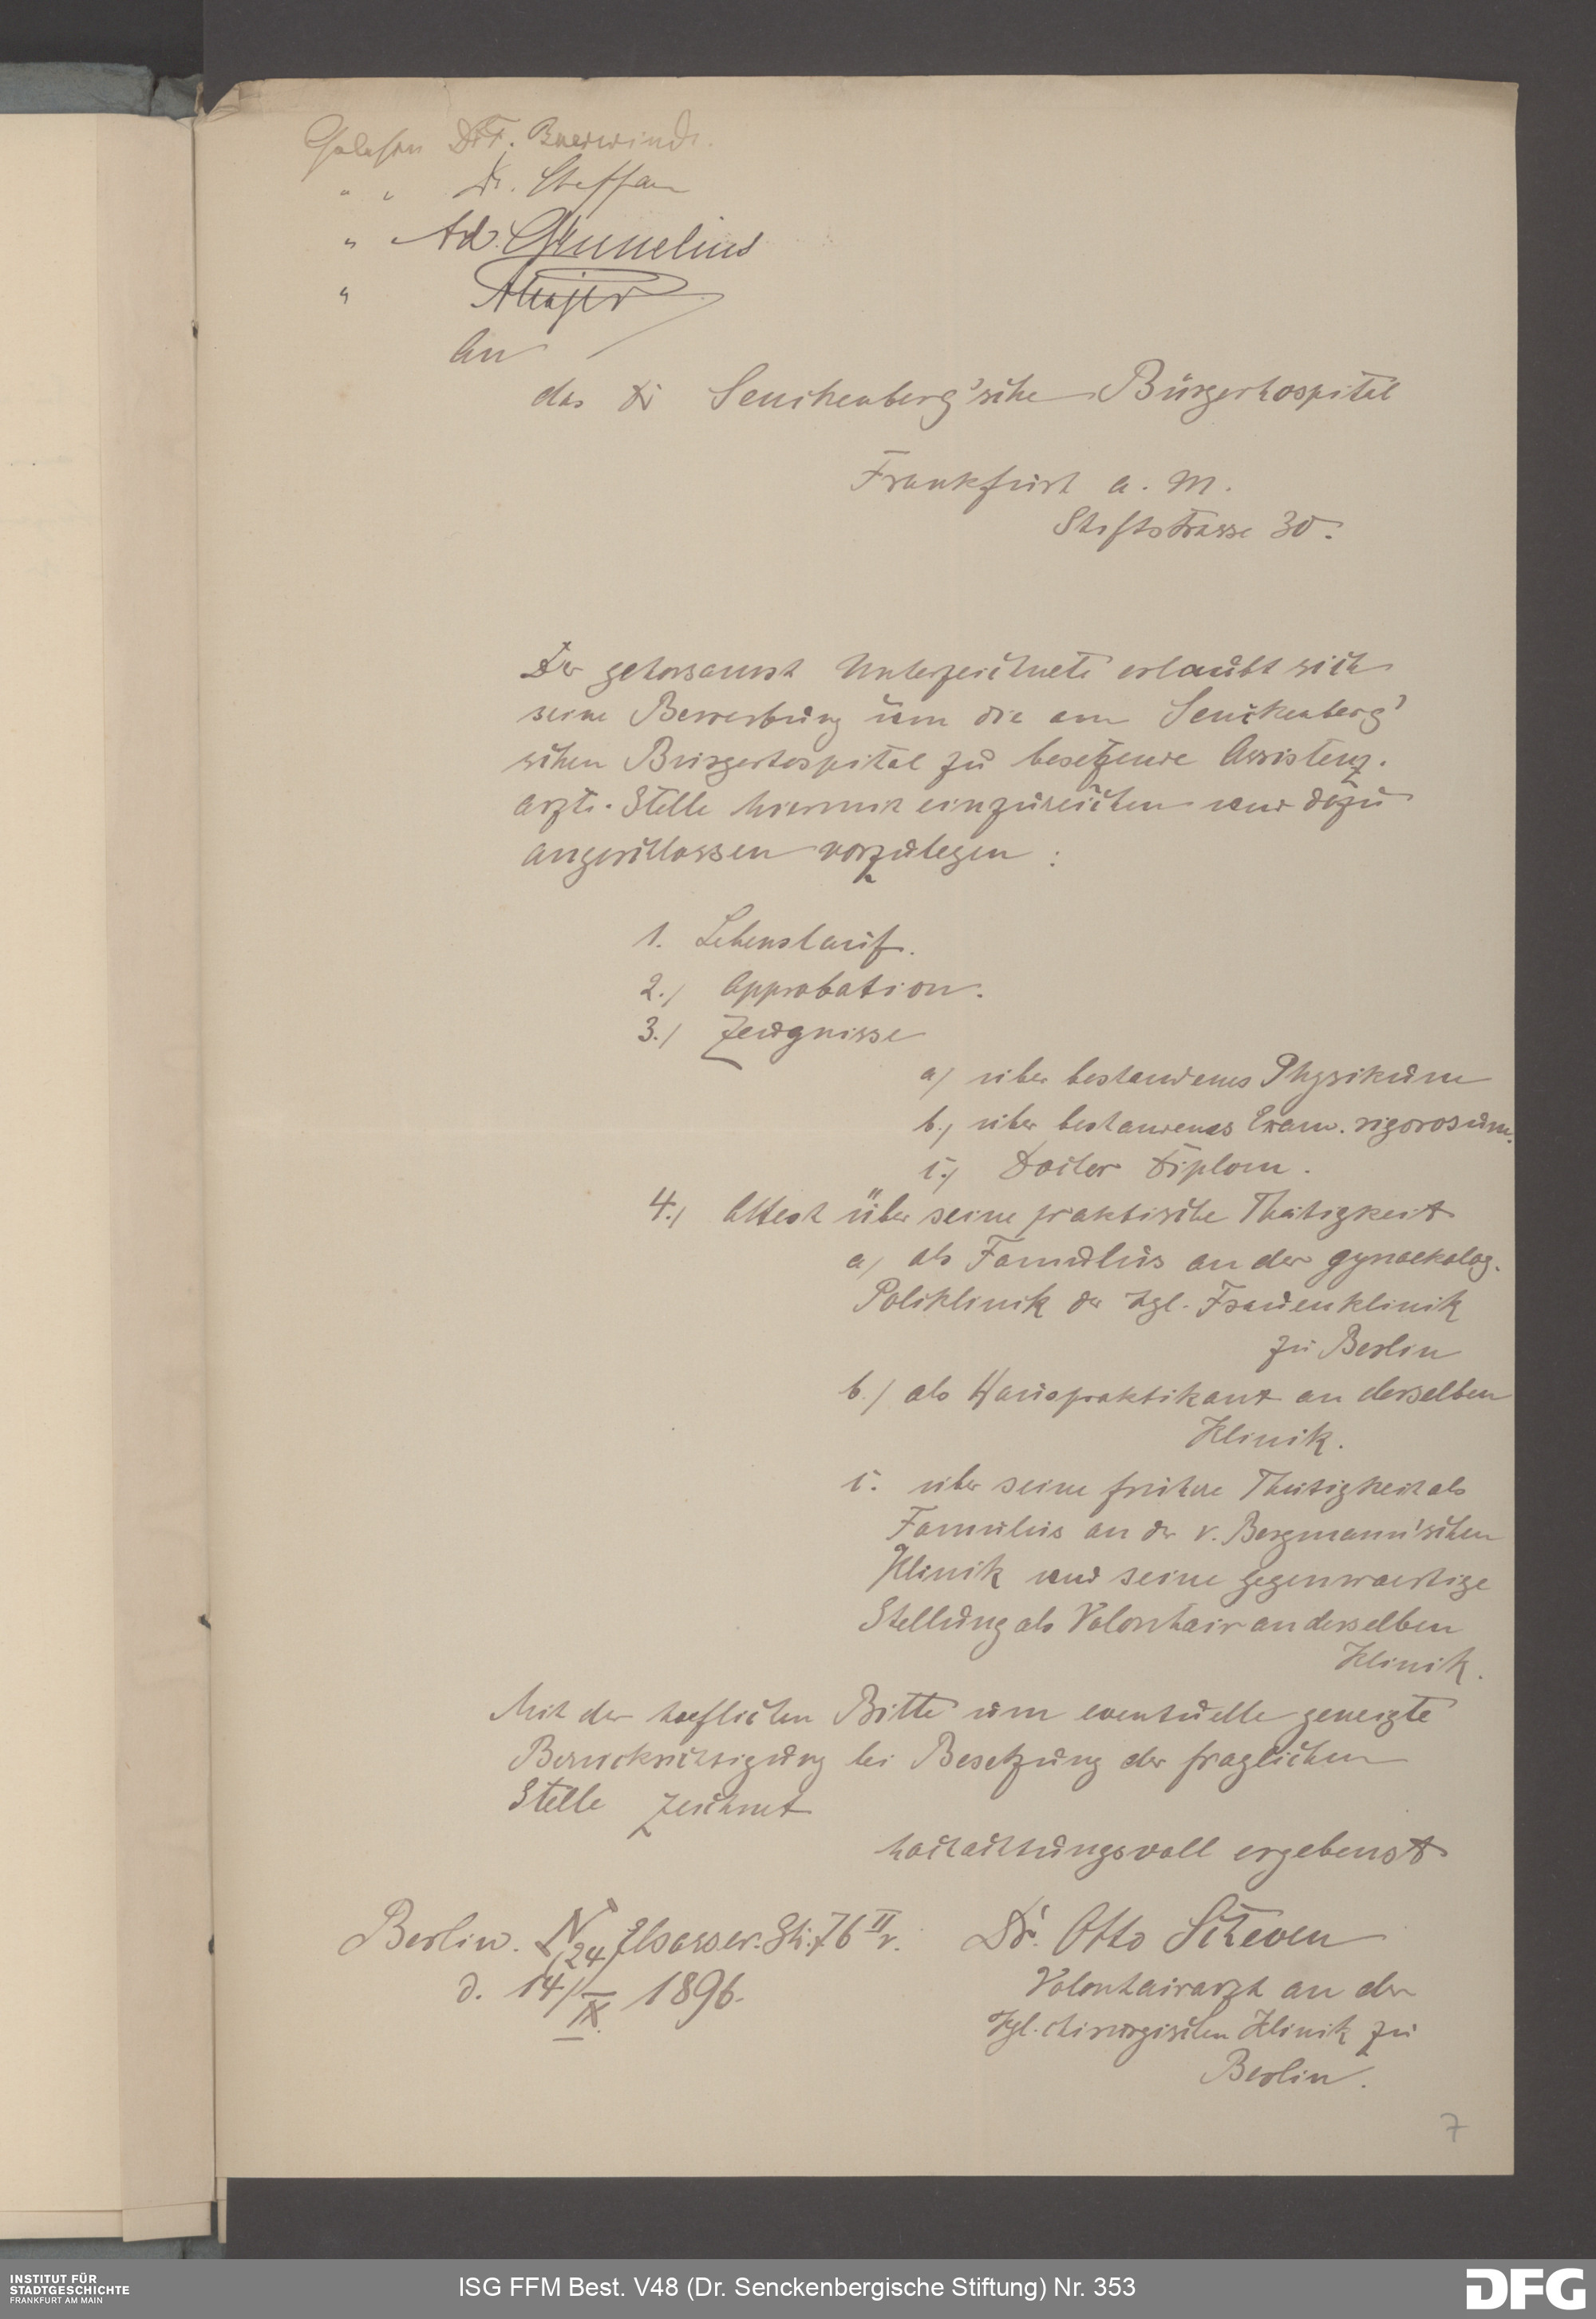 Gelesen Dr. F. Baerwindt.
" " Dr. Steffan
" " Ad. Grunelius
"
An
das Dr Senckenberg'sche Bürgerhospital
Frankfurt a. M.
Stiftstrasse 30.
Der gehorsamst Unterzeichnete erlaubt sich
seine Bewerbung um die am Senckenberg'
schen Bürgerhospital zu besetzende Assistenz-
arzt-Stelle hiermit einzureichen und dazu
angeschlossen vorzulegen:
1. Lebenslauf.
2.) Approbation.
3.) Zeugnisse
a) über bestandenes Physikum
b.) über bestandenes Exam. rigorosum.
c.) Doctor Diplom.
4.) Attest über seine praktische Thätigkeit
a) als Famulus an der gynaekolog.
Poliklinik der Kgl. Frauenklinik
zu Berlin
b.) als Hauspraktikant an derselben
Klinik.
c. über seine frühere Thätigkeit als
Famulus an der v. Bergmann'schen
Klinik und seine gegenwaertige
Stellung als Volontair an derselben
Klinik.
Mit der hoeflichen Bitte um eventuelle geneigte
Berücksichtigung bei Besetzung der fraglichen
Stelle zeichnet
hochachtungsvoll ergebenst
Berlin. N 24, Elsasser-Str. 76 II r.
d. 14/IX. 1896.
Dr. Otto Scheven
Volontairarzt an der
Kgl. chirurgischen Klinik zu
Berlin.
7
INSTITUT FÜR
STADTGESCHICHTE
FRANKFURT AM MAIN
ISG FFM Best. V48 (Dr. Senckenbergische Stiftung) Nr. 353
DFG